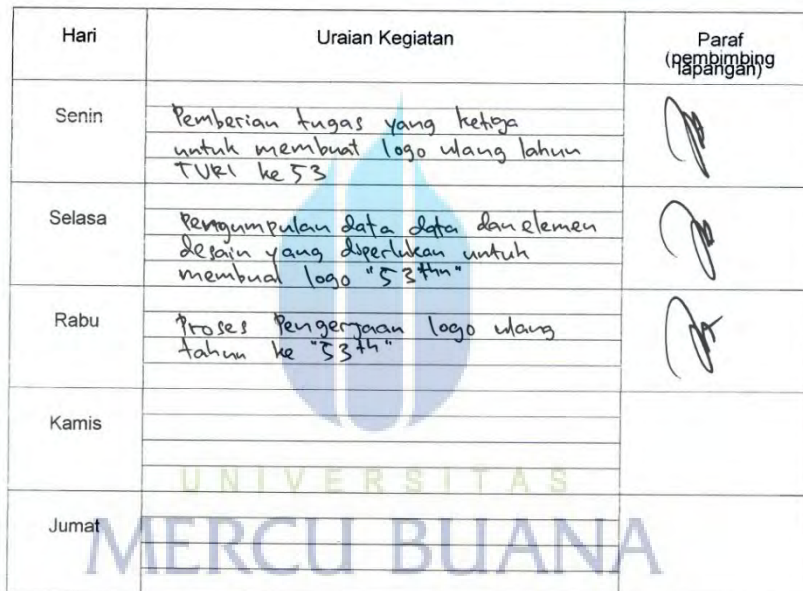 Hari Uraian Kegiatan Paraf
(pembimbing
lapangan)
Senin Pemberian tugas yang ketiga
untuk membuat logo ulang tahun
TVRI ke 53
Selasa Pengumpulan data data dan elemen
desain yang diperlukan untuk
membuat logo "53thn"
Rabu Proses Pengerjaan logo ulang
tahun ke "53th"
Kamis
UNIVERSITAS
Jumat
MERCU BUANA